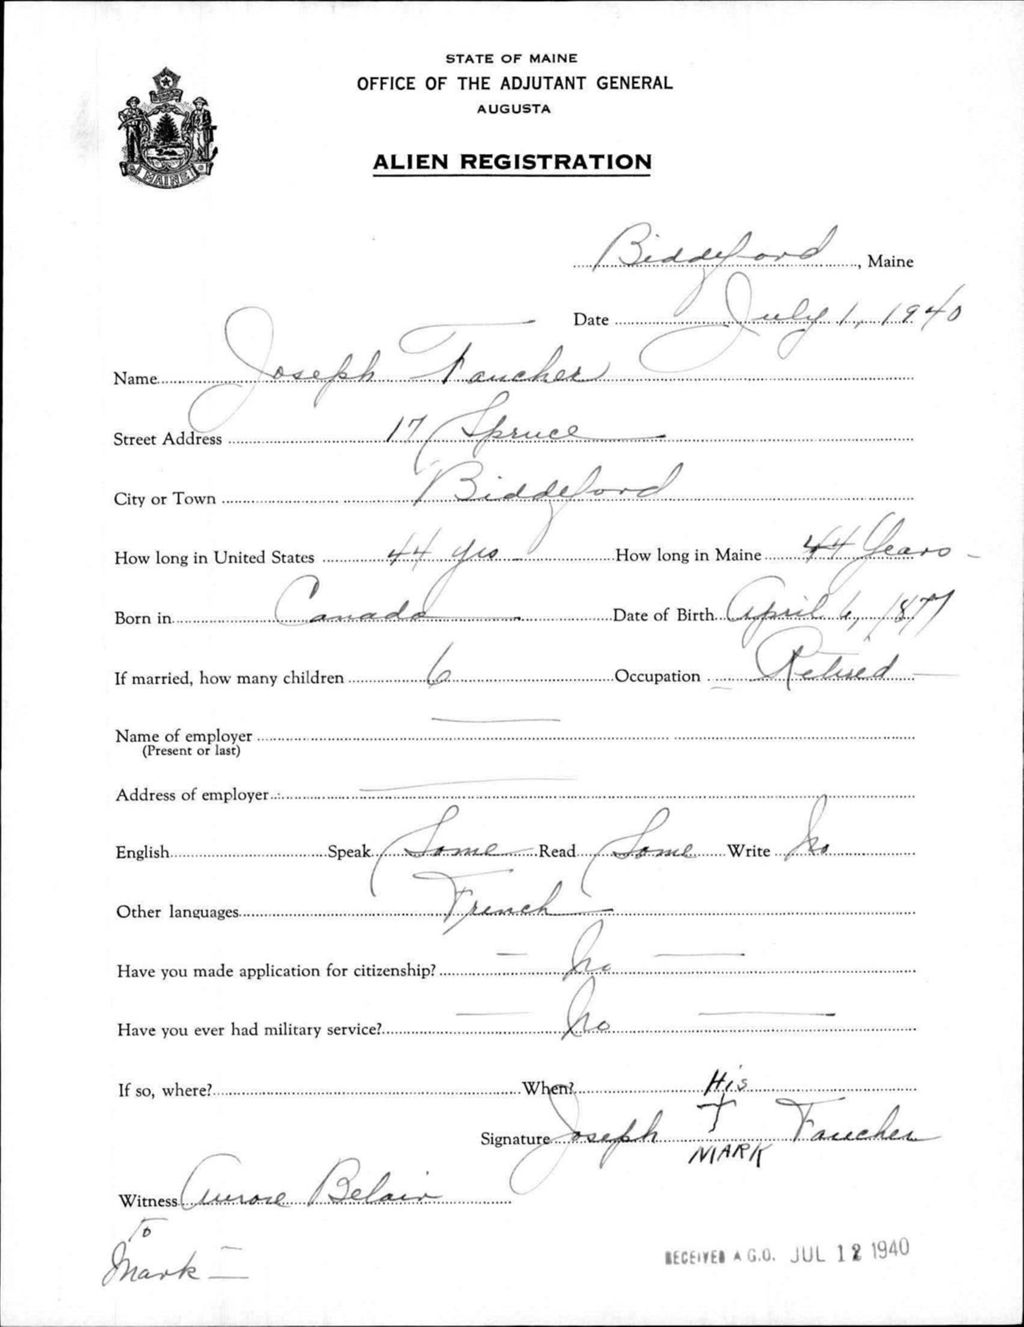 STATE OF MAINE
OFFICE OF THE ADJUTANT GENERAL
AUGUSTA
ALIEN REGISTRATION
MAINE
Biddeford, Maine
Date July 1, 1940
Name Joseph Faucher
Street Address 17 Spruce
City or Town Biddeford
How long in United States 44 yrs How long in Maine 44 Years
Born in Canada Date of Birth April 6, 1877
If married, how many children 6 Occupation Retired
Name of employer
(Present or last)
Address of employer
English Speak Some Read Some Write No
Other languages French
Have you made application for citizenship? No
Have you ever had military service? No
If so, where? When?
His
Signature Joseph + Faucher
MARK
Witness Aurore Belair
To
Mark
RECEIVED A.G.O. JUL 12 1940